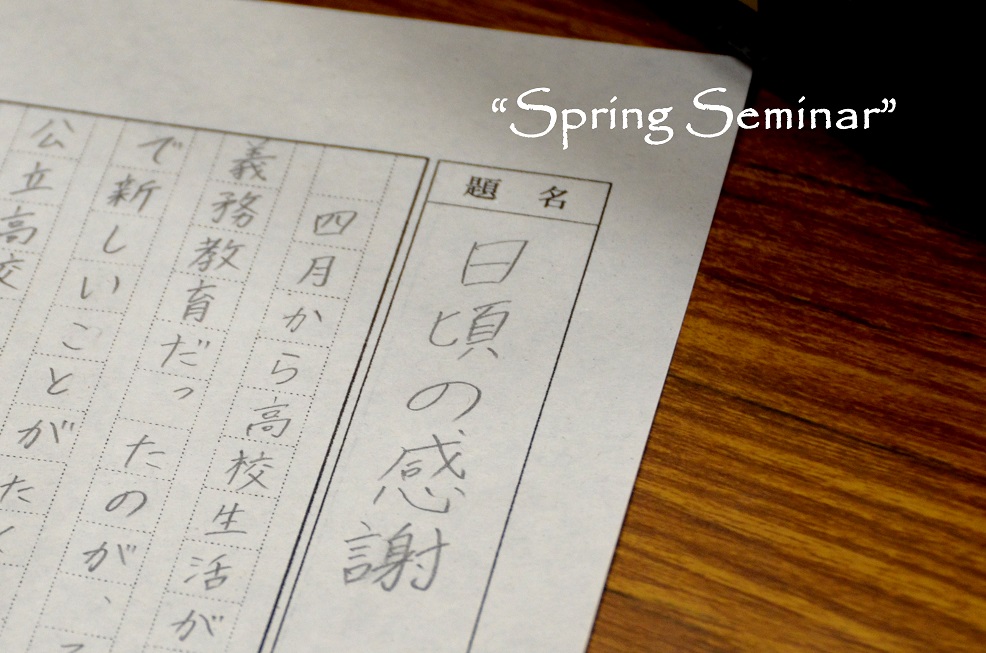 “Spring Seminar”
題名
日頃の感謝
四月から高校生活が
義務教育だったのが、
で新しいことが
公立高校
た